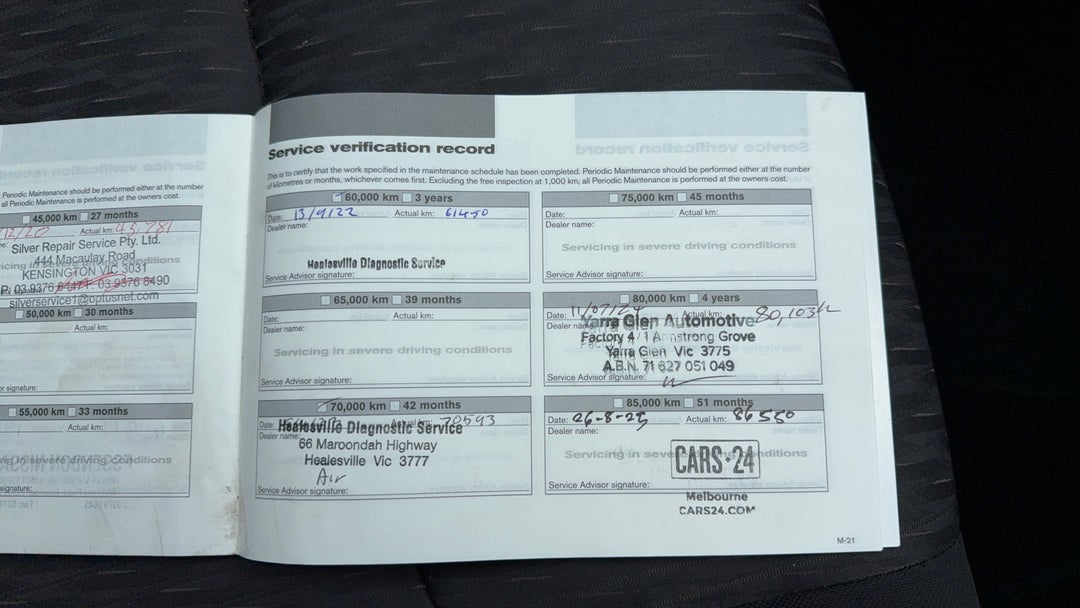 Periodic Maintenance should be performed either at the number
all Periodic Maintenance is performed at the owners cost.
45,000 km 27 months
12/20 Actual km: 43,781
Silver Repair Service Pty. Ltd.
444 Macaulay Road
KENSINGTON VIC 3031
P: 03 9376 03 9376 8490
silverservice1@optusnet.com
50,000 km 30 months
Actual km:
signature:
55,000 km 33 months
Actual km:
signature:
Service verification record
This is to certify that the work specified in the maintenance schedule has been completed. Periodic Maintenance should be performed either at the number
of kilometres or months, whichever comes first. Excluding the free inspection at 1,000 km, all Periodic Maintenance is performed at the owners cost.
60,000 km 3 years
Date: 13/9/22 Actual km: 61450
Dealer name:
Healesville Diagnostic Service
Service Advisor signature:
65,000 km 39 months
Date: Actual km:
Dealer name:
Servicing in severe driving conditions
Service Advisor signature:
70,000 km 42 months
Date: Actual km: 70593
Healesville Diagnostic Service
Dealer name:
66 Maroondah Highway
Healesville Vic 3777
Service Advisor signature:
75,000 km 45 months
Date: Actual km:
Dealer name:
Servicing in severe driving conditions
Service Advisor signature:
80,000 km 4 years
Date: 11/07/24 Actual km: 80,103
Dealer name:
Yarra Glen Automotive
Factory 4 / 1 Armstrong Grove
Yarra Glen Vic 3775
A.B.N. 71 627 051 049
Service Advisor signature:
85,000 km 51 months
Date: 26-8-25 Actual km: 86550
Dealer name:
Servicing in severe driving conditions
CARS·24
Service Advisor signature:
Melbourne
CARS24.COM
M-21